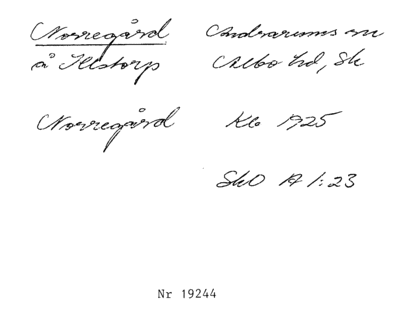 Norregård Andrarums sn
å Illstorp Albo hd, Sk
Norregård Kb 1925
SkO A 1:23
Nr 19244